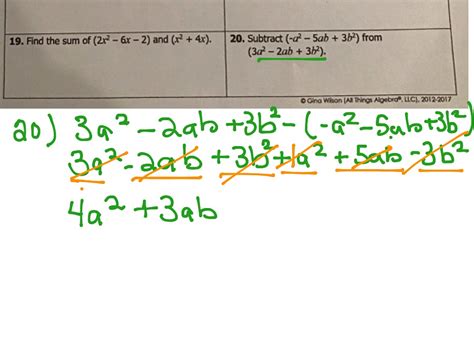 19. Find the sum of (2x² – 6x – 2) and (x² + 4x).
20. Subtract (-a² – 5ab + 3b²) from
(3a² – 2ab + 3b²).
© Gina Wilson (All Things Algebra®, LLC), 2012-2017
20) 3a² - 2ab + 3b² - (-a² - 5ab + 3b²)
3a² - 2ab + 3b² + 1a² + 5ab - 3b²
4a² + 3ab